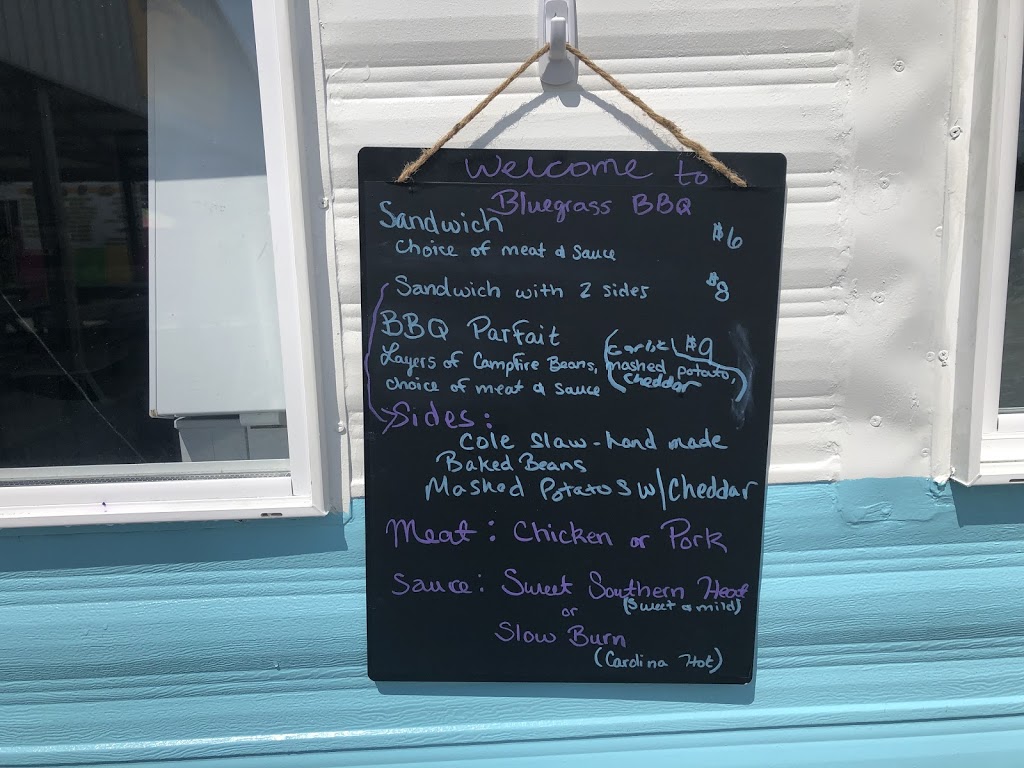 Welcome to
Bluegrass BBQ
Sandwich $6
Choice of meat & sauce
Sandwich with 2 sides $8
BBQ Parfait $9
Layers of Campfire Beans, mashed potato,
cheddar
choice of meat & sauce
Sides:
Cole Slaw - hand made
Baked Beans
Mashed Potatos w/Cheddar
Meat: Chicken or Pork
Sauce: Sweet Southern Heat
(Sweet & mild)
or
Slow Burn
(Carolina Hot)